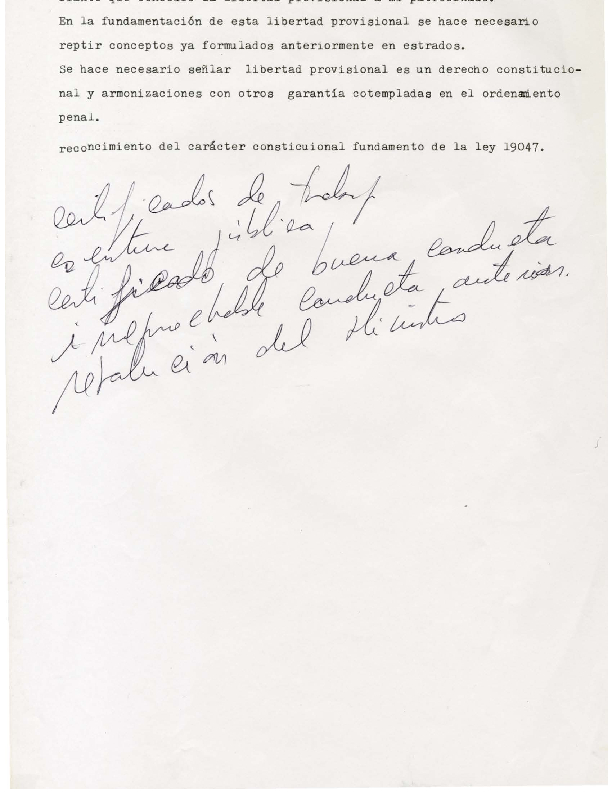 En la fundamentación de esta libertad provisional se hace necesario
reptir conceptos ya formulados anteriormente en estrados.
Se hace necesario señlar libertad provisional es un derecho constitucio-
nal y armonizaciones con otros garantía cotempladas en el ordenamiento
penal.
reconcimiento del carácter consticuional fundamento de la ley 19047.
certificados de
escritura pública,
certificado de buena conducta
irreprochable conducta anterior.
resolución del Ministro